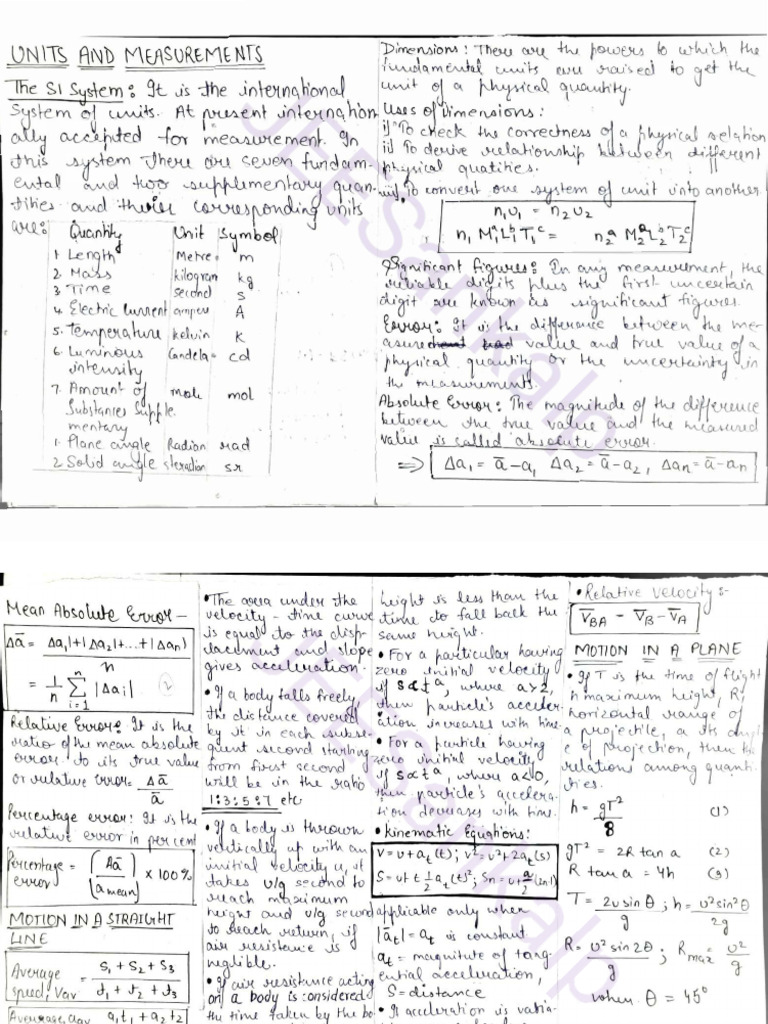 UNITS AND MEASUREMENTS
The SI System: It is the international
System of units. At present internation
ally accepted for measurement. In
this system there are seven fundam-
ental and two supplementary quan-
tities and their corresponding units
are:
Quantity Unit Symbol
1. Length Metre m
2. Mass kilogram kg
3. Time second s
4. Electric Current ampere A
5. Temperature kelvin K
6. Luminous Candela cd
intensity
7. Amount of mole mol
Substances Supple
mentary
1. Plane angle Radian rad
2. Solid angle steradian sr
Dimensions: There are the powers to which the
fundamental units are raised to get the
unit of a physical quantity.
Uses of Dimensions:
i) To check the correctness of a physical relation
ii) To derive relationship between different
physical quatities.
iii) To convert one system of unit into another
n₁υ₁ = n₂υ₂
n₁ M₁ᵃL₁ᵇT₁ᶜ = n₂ᵃ M₂ᵃL₂ᵇT₂ᶜ
Significant figures: In any measurement, the
reliable digits plus the first uncertain
digit are known as significant figures.
Error: It is the difference between the me-
asure value and true value of a
physical quantity or the uncertainty in
the measurements.
Absolute Error: The magnitude of the difference
between the true value and the measured
value is called absolute error.
⇒ Δa₁ = a̅ - a₁ Δa₂ = a̅ - a₂, Δan = a̅ - an
Mean Absolute Error -
Δa̅ = Δa₁|+|Δa₂|+...+|Δan|
n
= 1/n Σ |Δai|
n
i=1
2
Relative Error: It is the
ratio of the mean absolute
error to its true value
or relative error = Δa̅
a̅
Percentage error: It is the
relative error in per cent
Percentage error = (Aa̅ / a mean) × 100%
MOTION IN A STRAIGHT
LINE
Average speed, Vav = S₁ + S₂ + S₃
t₁ + t₂ + t₃
Average, aav a₁t₁ + a₂t₂
• The area under the
velocity - time curve
is equal to the disp-
lacement and slope
gives acceleration.
• If a body falls freely
the distance covered
by it in each subse-
quent second starting
from first second
will be in the ratio
1:3:5:7 etc
• If a body is thrown
vertically up with an
initial velocity u, it
takes u/g second to
reach maximum
height and u/g second
to reach return, if
air resistance is
neglible.
• If air resistance acting
on a body is considered
the time taken by the bo
height is less than the
time to fall back the
same height.
• For a particular having
zero initial velocity
if s∝tᵃ, where a>2,
then particle's acceler-
ation increases with time
• For a particle having
zero initial velocity
if s∝tᵃ, where a<0,
then particle's accelera-
tion decreases with time.
• Kinematic Equations:
V = u + at(t); v² = u² + 2at(s)
S = ut + 1/2 at(t)²; Sn = u + a/2 (2n-1)
applicable only when
|a̅t| = at is constant
at = magnitute of tang-
ential acceleration,
S = distance
• It acceleration is varia-
• Relative velocity:-
V̅BA - V̅B - V̅A
MOTION IN A PLANE
• If T is the time of flight
h maximum height, R
horizontal range of
a projectile, a its angl
e of projection, then the
relations among quanti-
ties.
h = gT²/8 (1)
gT² = 2R tan a (2)
R tan a = 4h (3)
T = 2υ sin θ/g; h = υ² sin² θ/2g
R = υ² sin 2θ/g; Rmax = υ²/g
when θ = 45°
JEESankalp
JEESankalp